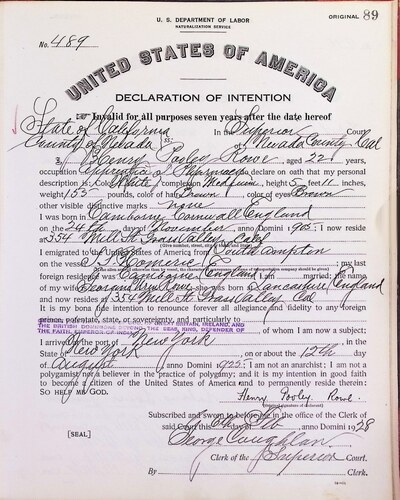 U. S. DEPARTMENT OF LABOR
NATURALIZATION SERVICE
ORIGINAL 89
No. 489
UNITED STATES OF AMERICA
DECLARATION OF INTENTION
Invalid for all purposes seven years after the date hereof
State of California In the Superior Court
County of Nevada ss: of Nevada County Cal
I, Henry Pooley Rowe, aged 22 years,
occupation Apprentice Pharmacist, declare on oath that my personal
description is: Color White, complexion Medium, height 5 feet 11 inches,
weight 135 pounds, color of hair Brown, color of eyes Brown
other visible distinctive marks none
I was born in Camborne Cornwall England
on the 24th day of November, anno Domini 1905; I now reside
at 354 Mill St Grass Valley, Calif.
I emigrated to the United States of America from Southampton
on the vessel; my last
foreign residence was Camborne England; I am married; the name
of my wife is Georgina Rowe; she was born at Lancashire England
and now resides at 354 Mill St Grass Valley Cal
It is my bona fide intention to renounce forever all allegiance and fidelity to any foreign
prince, potentate, state, or sovereignty, and particularly to
THE BRITISH DOMINIONS BEYOND THE SEAS, KING, DEFENDER OF
THE FAITH, EMPEROR OF INDIA, of whom I am now a subject;
I arrived at the port of New York, in the
State of New York, on or about the 12th day
of August, anno Domini 1925; I am not an anarchist; I am not a
polygamist nor a believer in the practice of polygamy; and it is my intention in good faith
to become a citizen of the United States of America and to permanently reside therein:
SO HELP ME GOD.
Henry Pooley Rowe.
Subscribed and sworn to before me in the office of the Clerk of
said Court this day of Feb, anno Domini 1928
[SEAL]
George Coughlan
Clerk of the Superior Court.
By, Clerk.